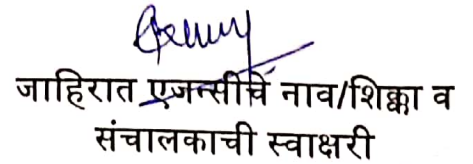 जाहिरात एजन्सीचे नाव/शिक्का व
संचालकाची स्वाक्षरी